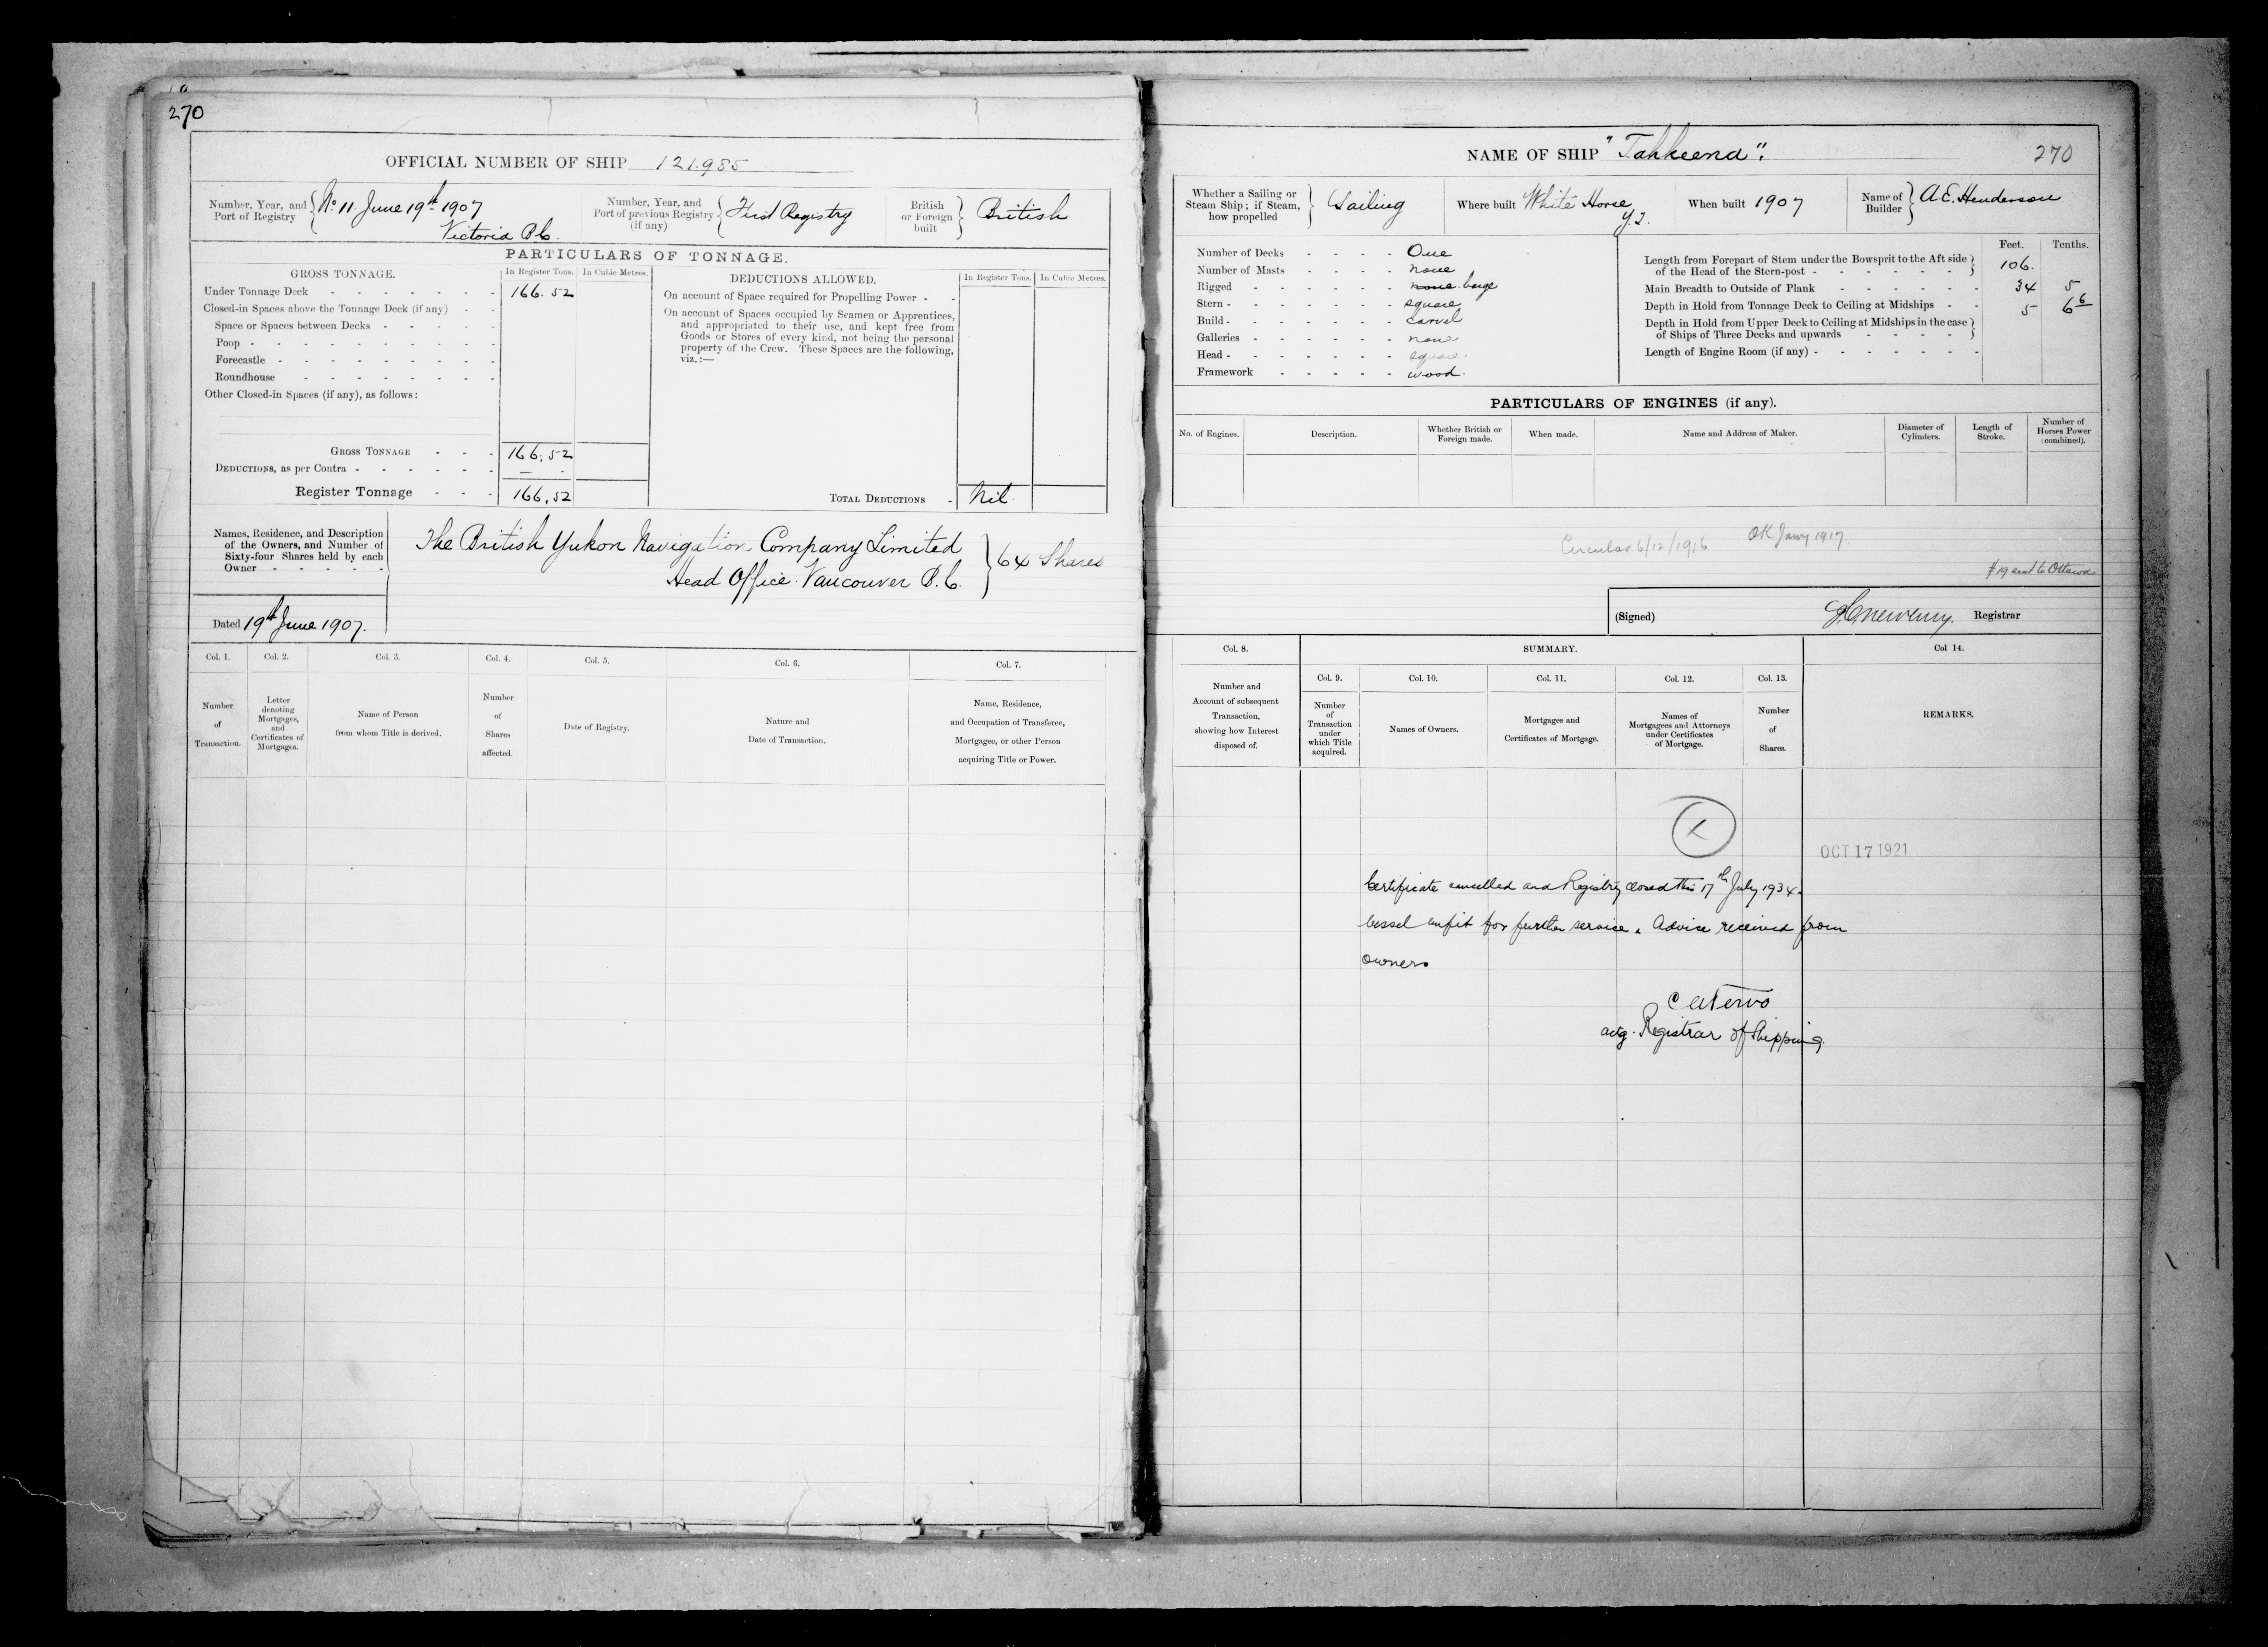 270
OFFICIAL NUMBER OF SHIP 121.985
Number, Year, and Port of Registry
No 11 June 19th 1907
Victoria B.C.
Number, Year, and Port of previous Registry (if any)
First Registry
British or Foreign built
British
PARTICULARS OF TONNAGE.
GROSS TONNAGE.
In Register Tons.
In Cubic Metres.
Under Tonnage Deck 166.52
Closed-in Spaces above the Tonnage Deck (if any)
Space or Spaces between Decks
Poop
Forecastle
Roundhouse
Other Closed-in Spaces (if any), as follows:
GROSS TONNAGE 166.52
DEDUCTIONS, as per Contra —
Register Tonnage 166.52
DEDUCTIONS ALLOWED.
In Register Tons.
In Cubic Metres.
On account of Space required for Propelling Power
On account of Spaces occupied by Seamen or Apprentices,
and appropriated to their use, and kept free from
Goods or Stores of every kind, not being the personal
property of the Crew. These Spaces are the following,
viz.:—
TOTAL DEDUCTIONS Nil.
Names, Residence, and Description
of the Owners, and Number of
Sixty-four Shares held by each
Owner
The British Yukon Navigation Company Limited
Head Office. Vancouver B.C.
64 Shares
Dated 19th June 1907.
Col. 1.
Number
of
Transaction.
Col. 2.
Letter
denoting
Mortgages,
and
Certificates of
Mortgages.
Col. 3.
Name of Person
from whom Title is derived.
Col. 4.
Number
of
Shares
affected.
Col. 5.
Date of Registry.
Col. 6.
Nature and
Date of Transaction.
Col. 7.
Name, Residence,
and Occupation of Transferee,
Mortgagee, or other Person
acquiring Title or Power.
NAME OF SHIP "Tahkeena".
270
Whether a Sailing or
Steam Ship; if Steam,
how propelled
Sailing
Where built White Horse
Y.T.
When built 1907
Name of
Builder
A.E. Henderson
Number of Decks One
Number of Masts none
Rigged none barge
Stern square
Build carvel
Galleries none
Head square.
Framework wood.
Feet.
Tenths.
Length from Forepart of Stem under the Bowsprit to the Aft side
of the Head of the Stern-post 106.
Main Breadth to Outside of Plank 34 5
Depth in Hold from Tonnage Deck to Ceiling at Midships 5 6 6
Depth in Hold from Upper Deck to Ceiling at Midships in the case
of Ships of Three Decks and upwards
Length of Engine Room (if any)
PARTICULARS OF ENGINES (if any).
No. of Engines.
Description.
Whether British or
Foreign made.
When made.
Name and Address of Maker.
Diameter of
Cylinders.
Length of
Stroke.
Number of
Horses Power
(combined).
Circular 6/12/1916
OK Jany 1917
#19 sent to Ottawa
(Signed)
Registrar
Col. 8.
Number and
Account of subsequent
Transaction,
showing how Interest
disposed of.
SUMMARY.
Col. 9.
Number
of
Transaction
under
which Title
acquired.
Col. 10.
Names of Owners.
Col. 11.
Mortgages and
Certificates of Mortgage.
Col. 12.
Names of
Mortgagees and Attorneys
under Certificates
of Mortgage.
Col. 13.
Number
of
Shares.
Col 14.
REMARKS.
OCT 17 1921
Certificate cancelled and Registry closed this 17th July 1934.
Vessel unfit for further service. Advice received from
owners
actg. Registrar of Shipping.